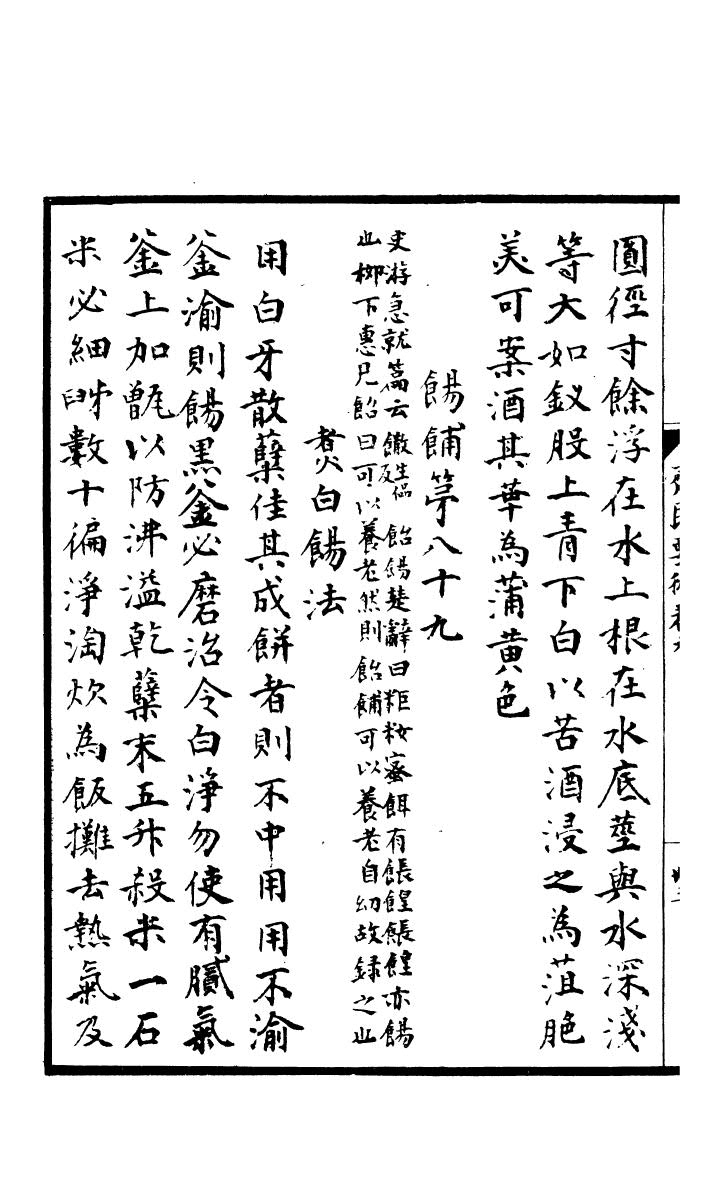 圓徑寸餘浮在水上根在水底莖與水深淺
等大如釵股上青下白以苦酒浸之為菹脆
美可案酒其華為蒲黄色
餳餔第八十九
史游急就篇云饊生但反飴餳楚辭曰粔籹蜜餌有餦餭餦餭亦餳
也柳下惠見飴曰可以養老然則飴餔可以養老自幼故録之也
煑白餳法
用白牙散糵佳其成餅者則不中用用不渝
釜渝則餳黒釜必磨治令白淨勿使有膩氣
釜上加甑以防沸溢乾糵末五升殺米一石
米必細䏣數十徧淨淘炊為飯攤去熱氣及